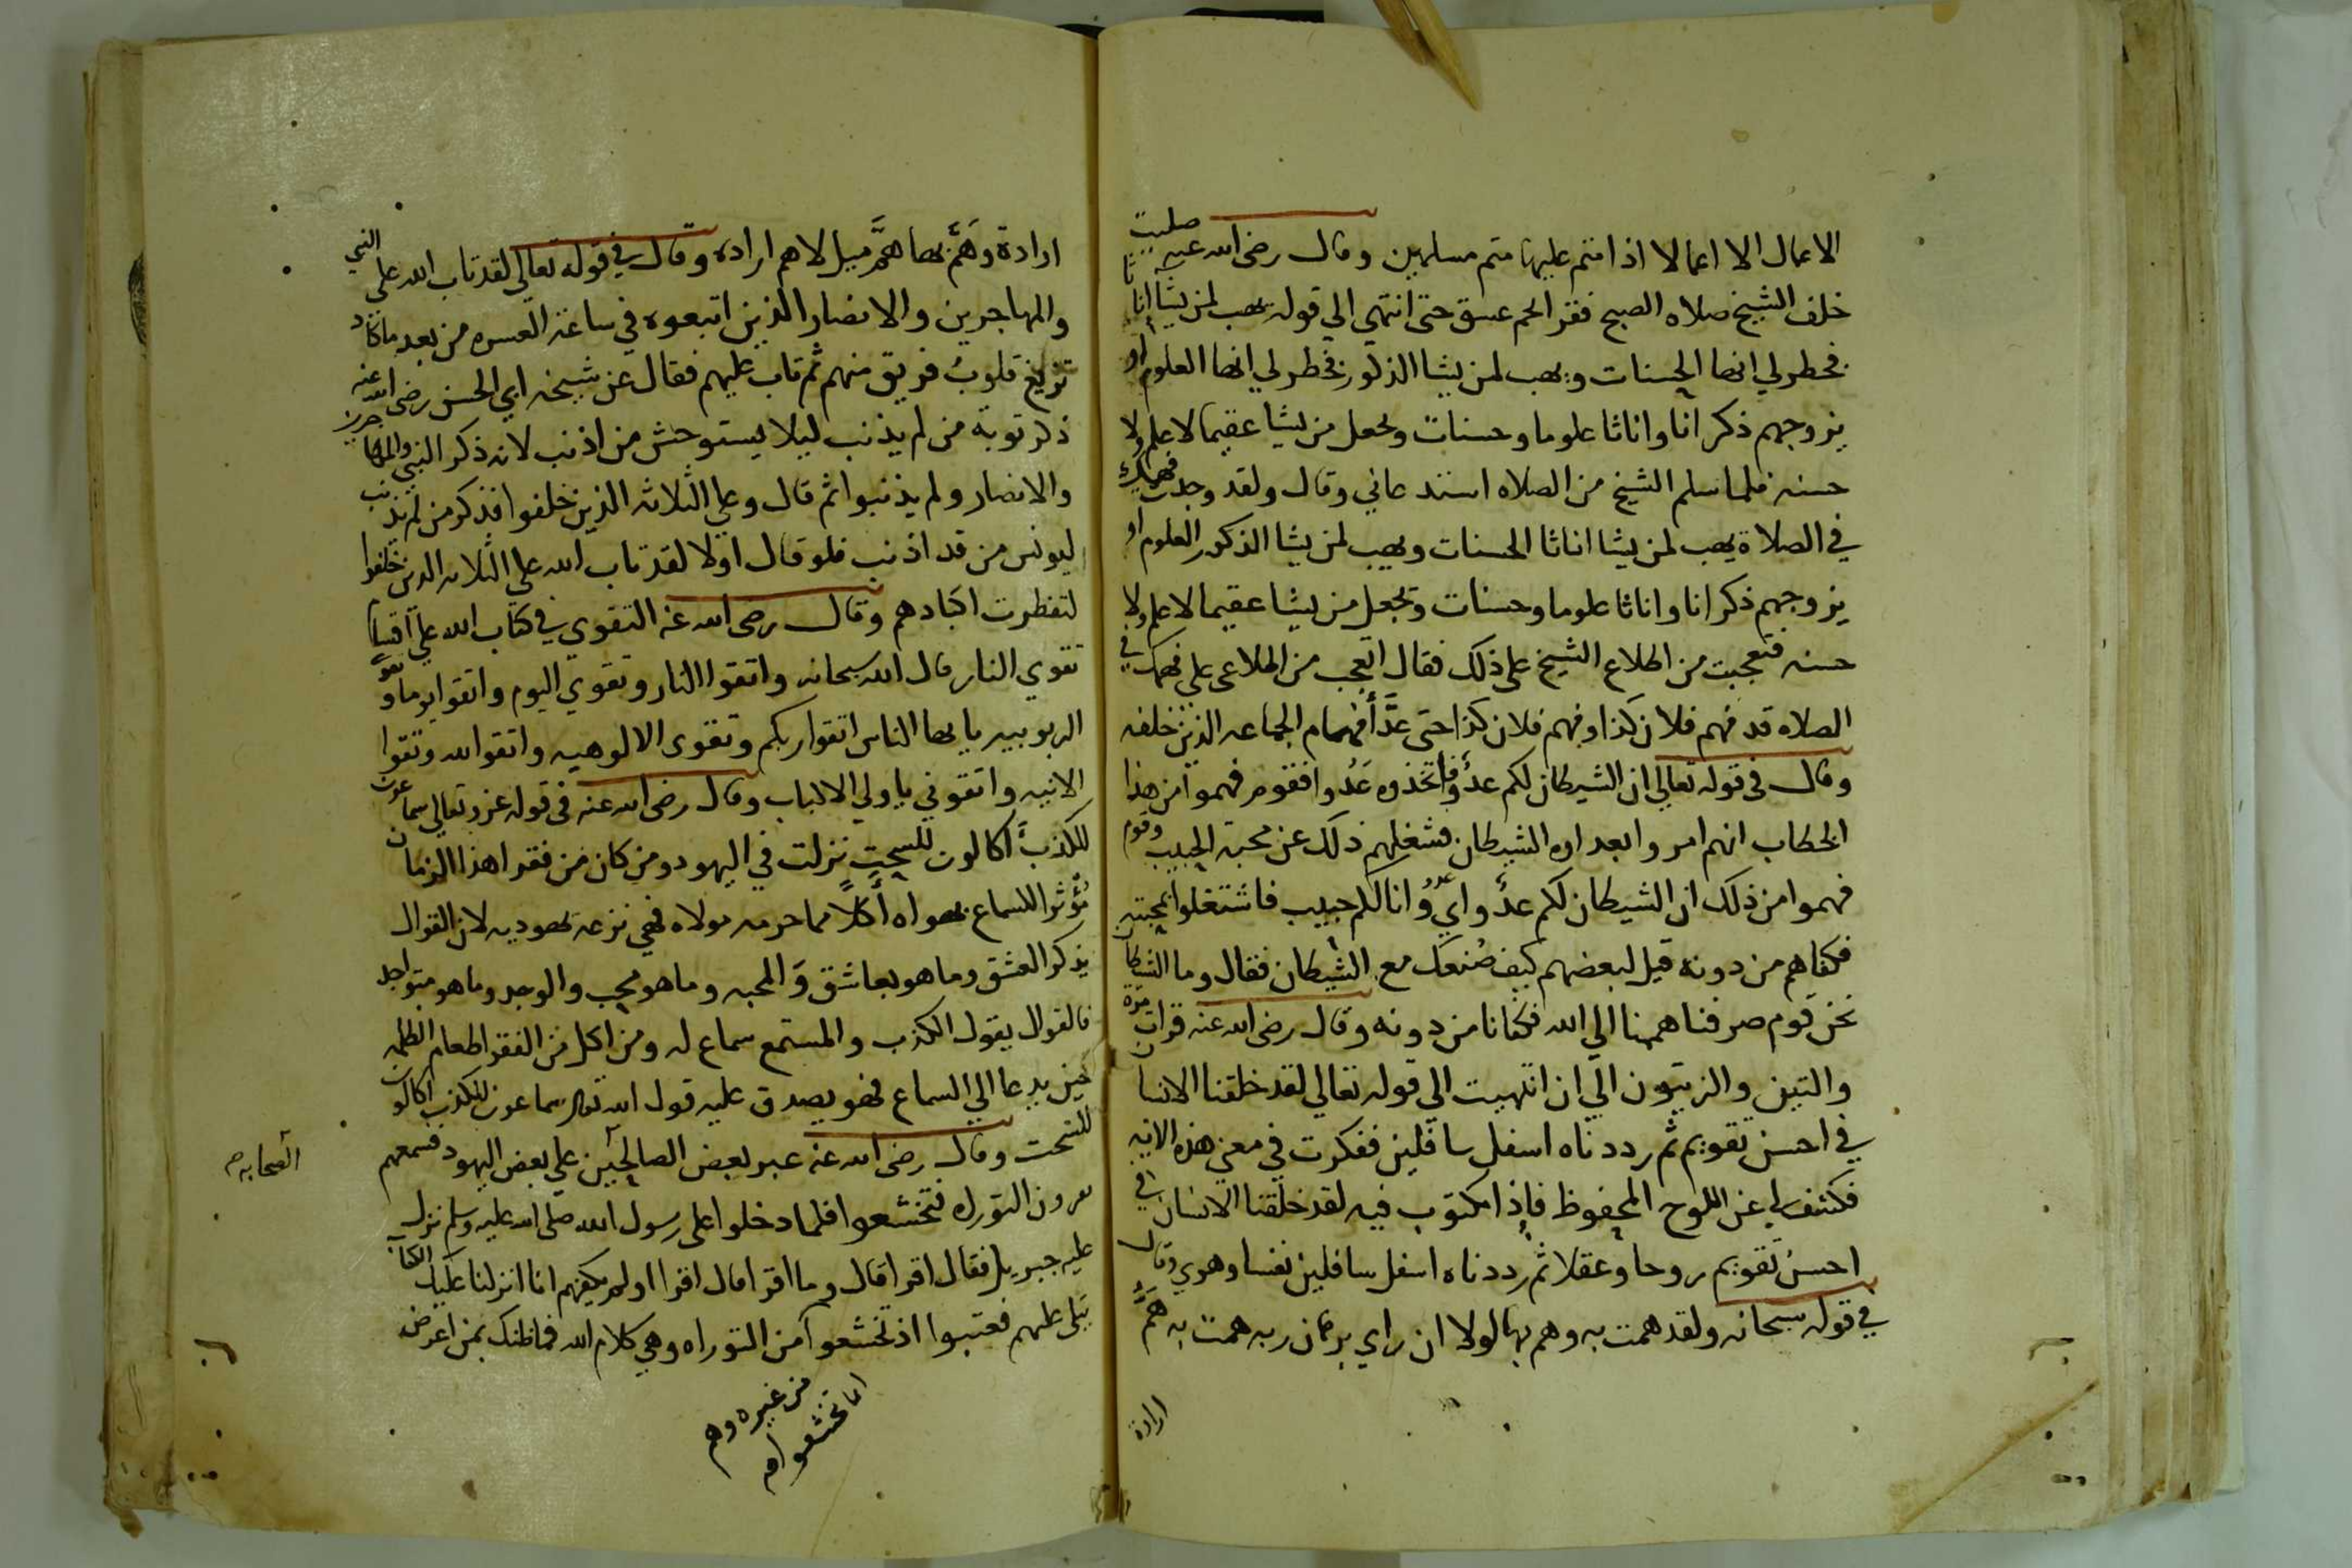 الاعمال الا اعمالا اذا متم عليها متم مسلمين وقال رضى الله عنه صليت
خلف الشيخ صلاه الصبح فقرا حم عسق حتى انتهي الي قوله يهب لمن يشا اناثا
فخطر لي انها الحسنات ويهب لمن يشا الذكور فخطر لي انها العلوم او
يزوجهم ذكرانا واناثا علوما وحسنات ويجعل من يشا عقيما لا علم ولا
حسنه فلما سلم الشيخ من الصلاه استدعاني وقال ولقد وجدت فهمك
في الصلاة يهب لمن يشا اناثا الحسنات ويهب لمن يشا الذكور العلوم او
يزوجهم ذكرانا واناثا علوما وحسنات ويجعل من يشا عقيما لا علم ولا
حسنه فتعجبت من اطلاع الشيخ على ذلك فقال اتعجب من اطلاعى على فهمك في
الصلاه قد فهم فلان كذا وفهم فلان كذا حتى عدَّ أفهام الجماعه الذين خلفه
وقال فى قوله تعالي ان الشيطان لكم عدوٌّ فاتخذوه عدُوا فقوم فهموا من هذا
الخطاب انهم امروا بعداوه الشيطان فشغلهم ذلك عن محبة الحبيب وقوم
فهموا من ذلك ان الشيطان لكم عدوٌ اي وانا لكم حبيب فاشتغلوا بمحبته
فكفاهم من دونه قيل لبعضهم كيف صُنعك مع الشيطان فقال وما الشيطان
نحن قوم صرفنا هممنا الي الله فكفانا من دونه وقال رضى الله عنه قرات مرة
والتين والزيتون الي ان انتهيت الي قوله تعالي لقد خلقنا الانسان
في احسن تقويم ثم رددناه اسفل سافلين ففكرت في معني هذه الايه
فكشف لي عن اللوح المحفوظ فإذا مكتوب فيه لقد خلقنا الانسان في
احسن تقويم روحا وعقلا ثم رددناه اسفل سافلين نفسا وهوي وقال
في قوله سبحانه ولقد همت به وهم بها لولا ان راي برهان ربه همت به همَّ
ارادة
ارادة وهَمَّ بها همَّ ميل لا هم ارادة وقال في قوله تعالى لقد تاب الله على النبي
والمهاجرين والانصار الذين اتبعوه في ساعة العسره من بعد ما كاد
تزيغ قلوبُ فريق منهم ثم تاب عليهم فقال عن شيخه ابي الحسن رضى الله عنه
ذكر توبة من لم يذنب ليلا يستوحش من اذنب لانه ذكر النبي والمهاجرين
والانصار ولم يذنبوا ثم قال وعلي الثلاثه الذين خلفوا فذكر من لم يذنب
ليونس من قد اذنب فلو قال اولا لقد تاب الله علي الثلاثه الذين خلفوا
لتفطرت اكبادهم وقال رضى الله عنه التقوي في كتاب الله علي اقسام
تقوي النار قال الله سبحانه واتقوا النار وتقوي اليوم واتقوا يوما وتقوي
الربوبيه يا يها الناس اتقوا ربكم وتقوى الالوهيه واتقوا الله وتقوا
الانيه واتقوني يا ولي الالباب وقال رضى الله عنه فى قوله عز وتعالي سماعون
للكذب أكالون للسحت نزلت في اليهود ومن كان من فقرا هذا الزمان
مُؤْثرا للسماع بهواه أكلاً مما حرمه مولاه فهي نزعه يهوديه لان القوال
يذكر العشق وما هو بعاشق والمحبه وما هو محب والوجد وما هو متواجد
فالقوال يقول الكذب والمستمع سماع له ومن اكل من الفقرا طعام الظلمه
حين يدعا الي السماع فهو يصدق عليه قول الله تعالى سماعون للكذب اكالون
للسحت وقال رضى الله عنه عبر بعض الصالحين علي بعض اليهود فسمعهم
الصحابه
يقرون التورله فتخشعوا فلما دخلوا على رسول الله صلى الله عليه وسلم نزل
عليه جبريل فقال اقرا قال وما اقرا قال اقرا اولم يكفهم انا انزلنا عليك الكتاب
يتلى عليهم فعتبوا اذ تخشعوا من التوراه وهي كلام الله فما ظنك بمن اعرض
من غيره وهم
انما تخشعوا